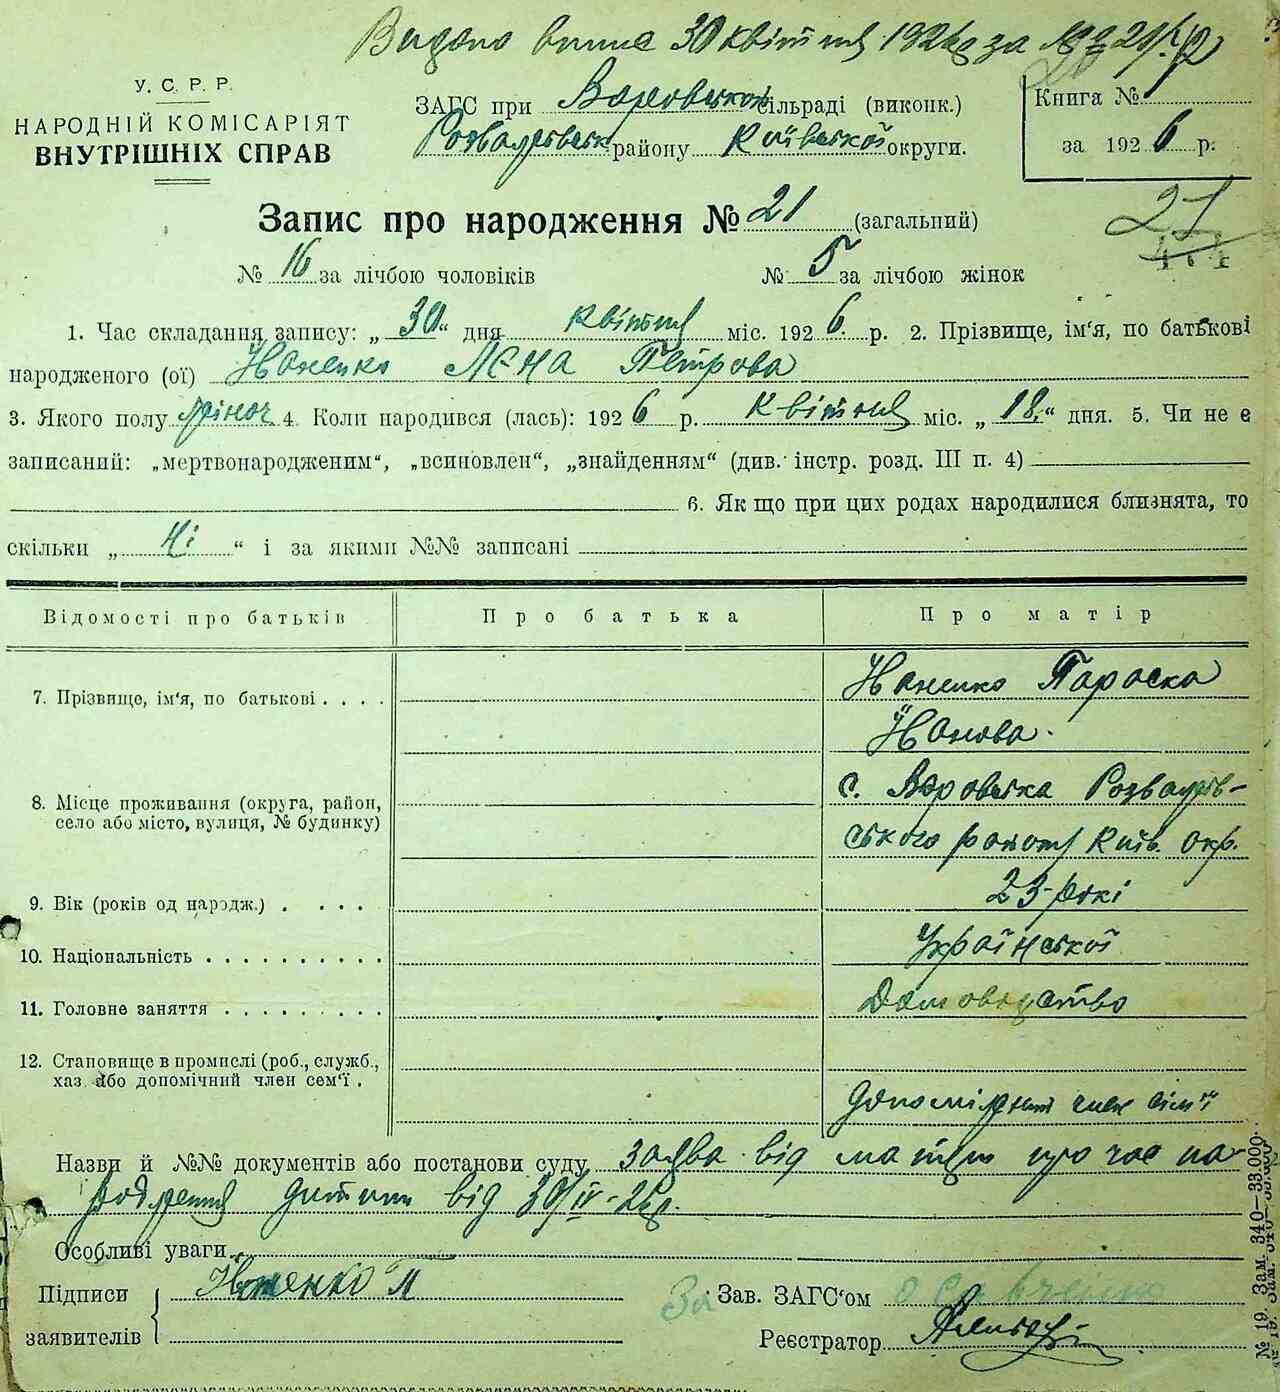 Видано виписа 30 квітня 1926 р за № 21
У. С. Р. Р.
НАРОДНІЙ КОМІСАРІЯТ
ВНУТРІШНІХ СПРАВ
ЗАГС при Варовській сільраді (виконк.)
Розважівськ району Київської округи.
Книга № 1
за 1926 р.
Запис про народження № 21 (загальний)
21
№ 16 за лічбою чоловіків № 5 за лічбою жінок
1. Час складання запису: „30“ дня квітня міс. 1926 р. 2. Прізвище, ім'я, по батькові
народженого (ої) Йоненко Лєна Петрова
3. Якого полу жіноч 4. Коли народився (лась): 1926 р. квітня міс. „18“ дня. 5. Чи не є
записаний: „мертвонародженим“, „всиновлен“, „знайденням“ (див. інстр. розд. III п. 4)
6. Як що при цих родах народилися близнята, то
скільки „Ні“ і за якими №№ записані
Відомості про батьків Про батька Про матір
7. Прізвище, ім'я, по батькові . . . . Йоненко Параска
Йонова.
8. Місце проживання (округа, район, с. Варовська Розважів-
село або місто, вулиця, № будинку) ського району Київ. окр.
9. Вік (років од народж.) . . . . 23 рокі
10. Національність . . . . . . . . . . Української
11. Головне заняття . . . . . . . . . Домоводство
12. Становище в промислі (роб., служб.,
хаз. або допомічний член сем'ї . допоміжний член сім'ї
Назви й №№ документів або постанови суду заява від матері про час на-
родження дитини від 30/IV-26р.
Особливі уваги
Підписи Йоненко М
заявителів
За Зав. ЗАГС'ом О Савченко
Реєстратор
№ 19. Зам. 340—33.000.